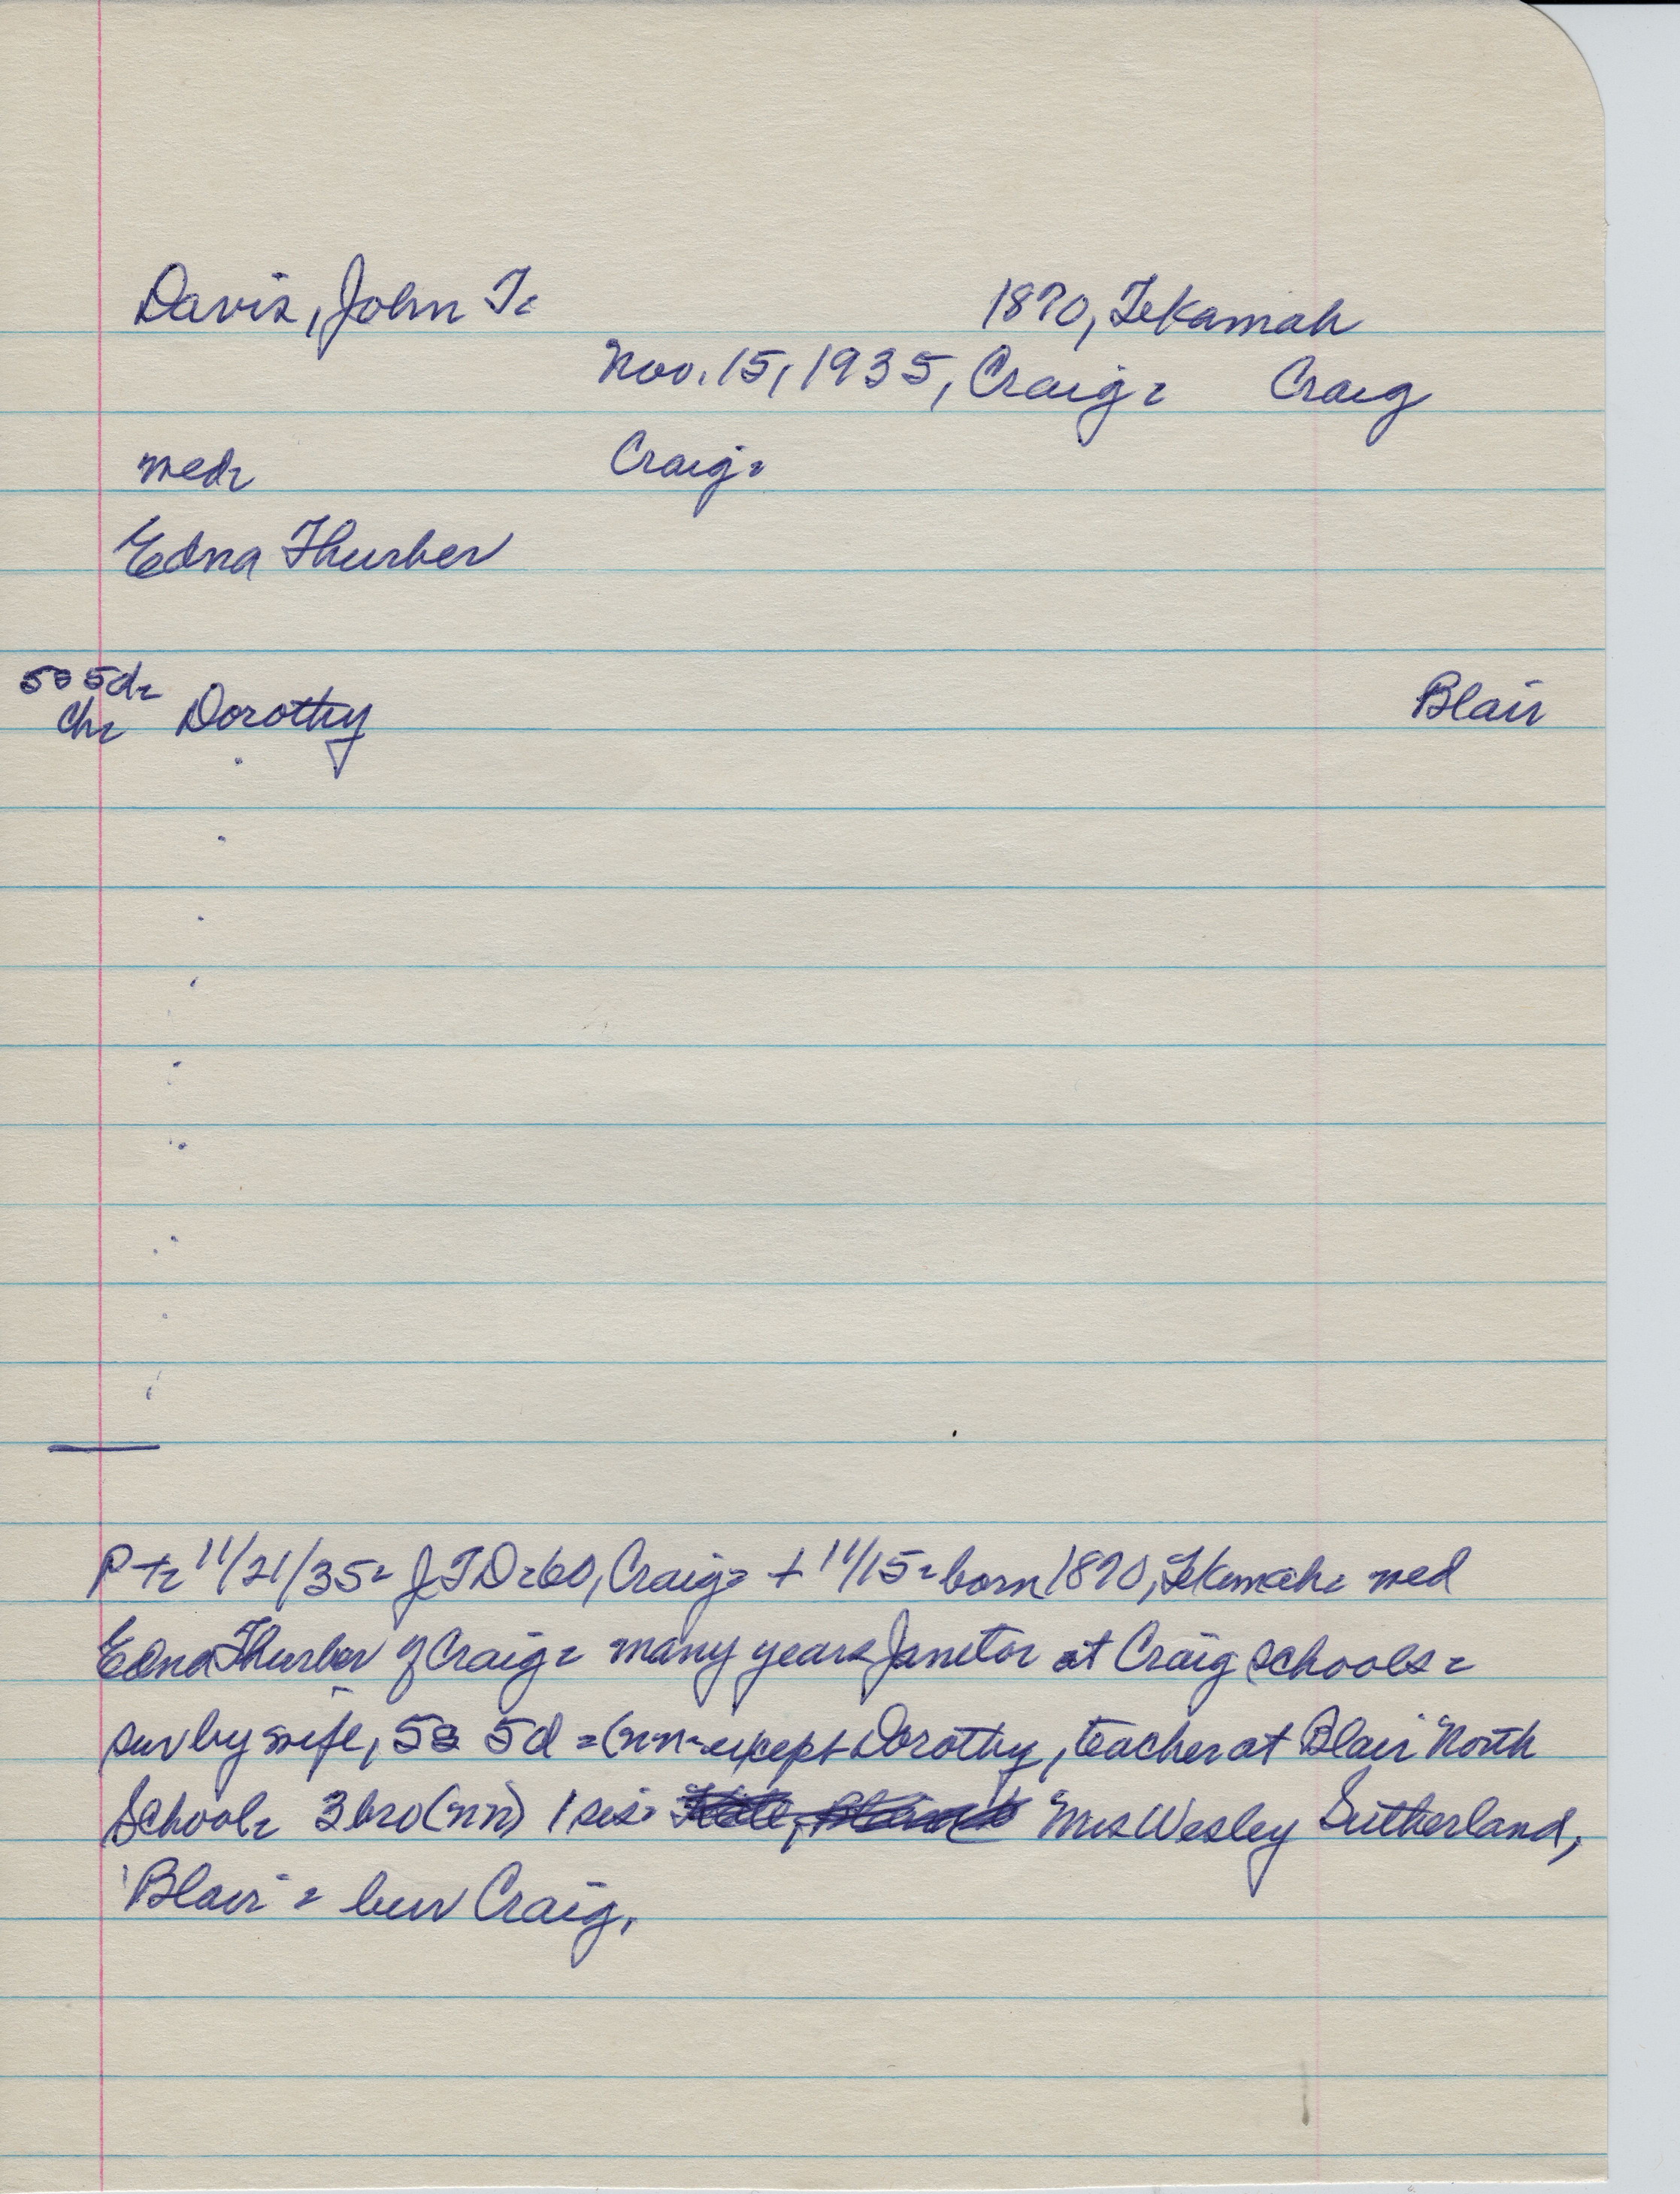 Davis, John T= 1870, Tekamah
Nov. 15, 1935, Craig= Craig
med= Craig=
Edna Thurber
5s 5d=
Ch= Dorothy Blair
P T= 11/21/35= JTD=60, Craig= + 11/15= born 1870, Tekamah= med
Edna Thurber of Craig= many years Janitor at Craig schools=
surv by wife, 5s 5d =(nn-except Dorothy, teacher at Blair North
School= 3 bro (nn) 1 sis= Mrs Wesley Sutherland,
Blair = bur Craig.